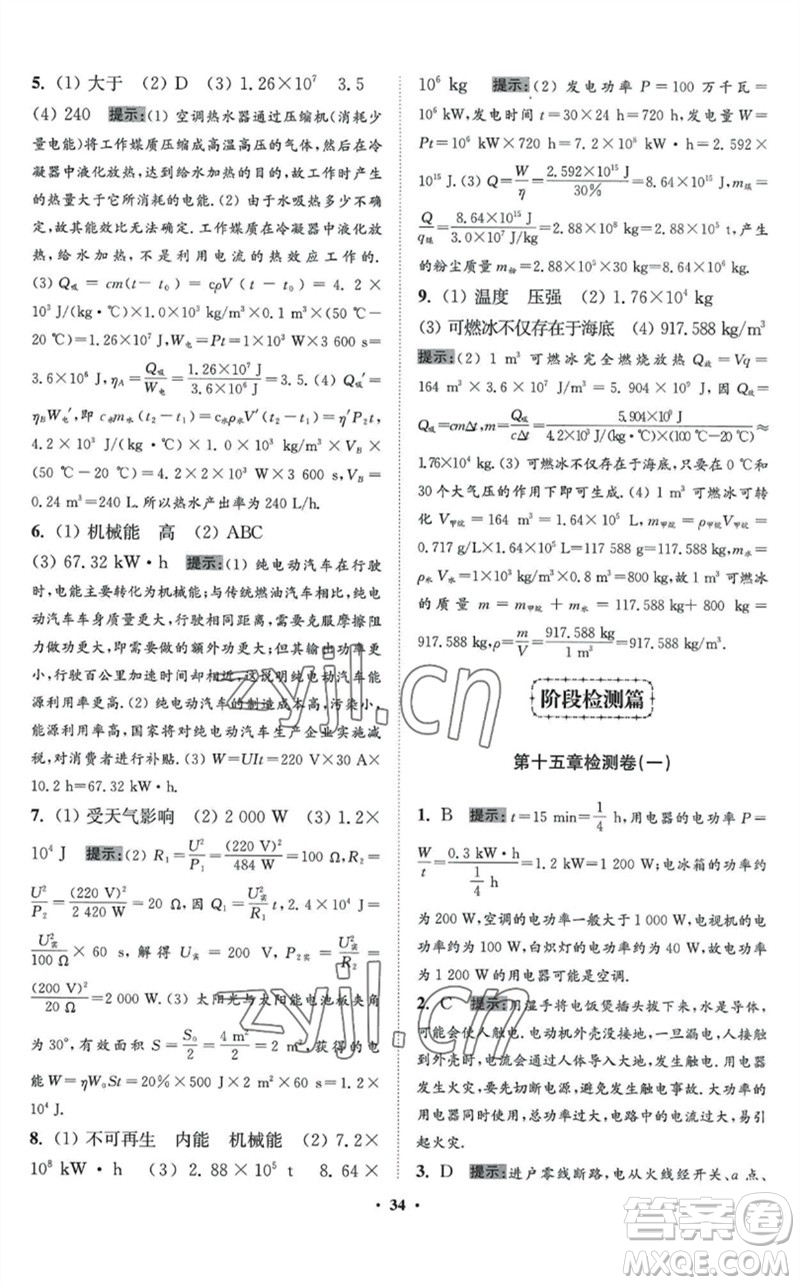 5. (1) 大于 (2) D (3) 1.26×10⁷ 3.5
(4) 240 提示:(1) 空调热水器通过压缩机(消耗少
量电能)将工作媒质压缩成高温高压的气体,然后在冷
凝器中液化放热,达到给水加热的目的,在工作时产生
的热量大于它所消耗的电能.(2) 由于水吸热多少不确
定,其能效比无法确定.工作媒质在冷凝器中液化放
热,给水加热,不是利用电流的热效应工作的.
(3) Q吸 = cm(t − t₀) = cρV (t − t₀) = 4.2 ×
10³ J/(kg·℃)×1.0×10³ kg/m³×0.1 m³×(50 ℃−
20 ℃)=1.26×10⁷ J,W电=Pt=1×10³ W×3 600 s=
3.6×10⁶ J,ηA=Q吸/W电=1.26×10⁷ J/3.6×10⁶ J=3.5.(4) Q吸′=
ηBW电′,即 c水m水(t₂−t₁)=c水ρ水V′(t₂−t₁)=η′P₂t,
4.2×10³ J/(kg·℃)×1.0×10³ kg/m³×VB×
(50 ℃−20 ℃)=4.2×2×10³ W×3 600 s,解得 VB=
0.24 m³=240 L.所以热水产出率为 240 L/h.
6. (1) 机械能 高 (2) ABC
(3) 67.32 kW·h 提示:(1) 纯电动汽车在行驶
时,电能主要转化为机械能;与传统燃油汽车相比,纯
电动汽车车身质量更大,行驶相同距离,需要克服摩擦
阻力做功更大,也就是做的额外功更大;但其输出功率
更大,行驶百公里加速时间却相近,这说明纯电动汽车
能源利用率更高.(2) 纯电动汽车的制造成本高,污染小,
能源利用率更高,国家将对纯电动汽车生产企业实施减
税,对消费者进行补贴.(3) W=UIt=510 V×30 A×
4.4 h=67.32 kW·h.
7. (1) 受天气影响 (2) 2 000 W (3) 1.2×
10⁴ J 提示:(2) R₁=U²/P₁=(220 V)²/484 W=100 Ω,R₂=
U²/P₂=(220 V)²/2 420 W=20 Ω,因 Q₁=U实²/R₁t,则 4×10⁴ J=
U实²/100 Ω×60 s,解得 U实=200 V,P₂实=U实²/R₂=
(200 V)²/20 Ω=2 000 W.(3) 太阳光与太阳能电池板夹角
为 30°,有效面积 S=S₀/2=4 m²/2=2 m²,获得的电
能 W=ηW₀St=20%×500 J×2 m²×60 s=1.2×
10⁴ J.
8. (1) 不可再生 内能 机械能 (2) 7.2×
10⁸ kW·h (3) 2.88×10⁵ t 8.64×
10⁶ kg 提示:(2) 发电功率 P=100 万千瓦=
10⁶ kW,发电时间 t=30×24 h=720 h,发电量 W=
Pt=10⁶ kW×720 h=7.2×10⁸ kW·h=2.592×
10¹⁵ J.(3) Q=W/η=2.592×10¹⁵ J/30%=8.64×10¹⁵ J,m煤=
Q/q煤=8.64×10¹⁵ J/3.0×10⁷ J/kg=2.88×10⁸ kg=2.88×10⁵ t,产生
的粉尘质量 m粉=2.88×10⁸ kg×3%=8.64×10⁶ kg.
9. (1) 温度 压强 (2) 1.76×10⁴ kg
(3) 可燃冰不仅存在于海底 (4) 917.588 kg/m³
提示:(2) 1 m³ 可燃冰完全燃烧放热 Q放=Vq=
164 m³×3.6×10⁷ J/m³=5.904×10⁹ J=Q吸,
Q吸=cmΔt,m=Q吸/cΔt=5.904×10⁹ J/4.2×10³ J/(kg·℃)×(100 ℃−20 ℃)≈
1.76×10⁴ kg.(3) 可燃冰不仅存在于海底,只要在 0 ℃和
30 个大气压的作用下即可生成.(4) 1 m³ 可燃冰可转
化 V甲烷=164 m³=1.64×10⁵ L,m甲烷=ρ甲烷V甲烷=
0.717 g/L×1.64×10⁵ L=117.588 kg,m水=
ρ水V水=1×10³ kg/m³×0.8 m³=800 kg,故 1 m³ 可燃冰
的质量 m=m甲烷+m水=117.588 kg+800 kg=
917.588 kg,ρ=m/V=917.588 kg/1 m³=917.588 kg/m³.
阶段检测篇
第十五章检测卷(一)
1. B 提示:t=15 min=1/4 h,用电器的电功率 P=
W/t=0.3 kW·h/(1/4 h)=1.2 kW=1 200 W;电冰箱的功率约
为 200 W,空调的电功率一般大于 1 000 W,电视机的电
功率约为 100 W,白炽灯的电功率约为 40 W,故电功率
为 1 200 W 的用电器可能是空调.
2. C 提示:用湿手将电饭煲插头拔下来,水是导体,
可能会发生触电.电动机外壳没接地,一旦漏电,人接触
到外壳时,电流会通过人体流入大地,会发生触电.电器
发生火灾,要先切断电源,以免发生触电事故.大功率的
用电器同时使用,总功率过大,电路中的电流过大,易引
起火灾.
3. D 提示:进户零线断路,电从火线经开关、a 点、
• 34 •
zyjl.cn
zyjl.cn
答案卷
MXQE.COM